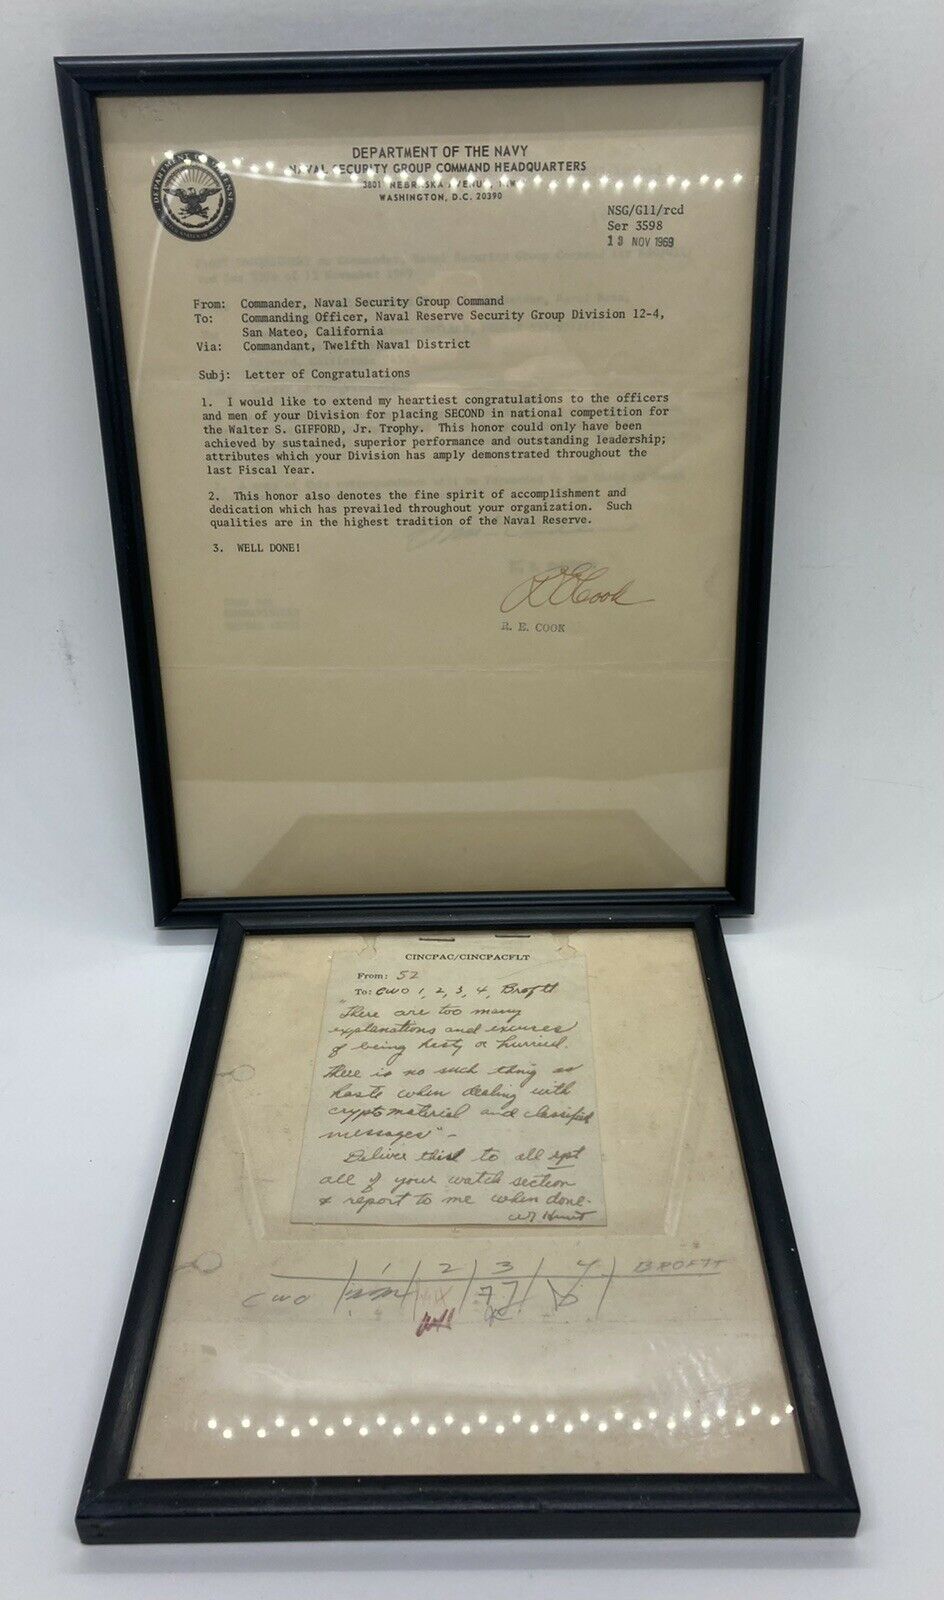 DEPARTMENT OF THE NAVY
NAVAL SECURITY GROUP COMMAND HEADQUARTERS
3801 NEBRASKA AVENUE, N.W.
WASHINGTON, D.C. 20390
NSG/G11/rcd
Ser 3598
13 NOV 1969
From: Commander, Naval Security Group Command
To: Commanding Officer, Naval Reserve Security Group Division 12-4,
San Mateo, California
Via: Commandant, Twelfth Naval District
Subj: Letter of Congratulations
1. I would like to extend my heartiest congratulations to the officers
and men of your Division for placing SECOND in national competition for
the Walter S. GIFFORD, Jr. Trophy. This honor could only have been
achieved by sustained, superior performance and outstanding leadership;
attributes which your Division has amply demonstrated throughout the
last Fiscal Year.
2. This honor also denotes the fine spirit of accomplishment and
dedication which has prevailed throughout your organization. Such
qualities are in the highest tradition of the Naval Reserve.
3. WELL DONE!
R E Cook
R. E. COOK
CINCPAC/CINCPACFLT
From: 52
To: CWO 1, 2, 3, 4, Broftt
"There are too many
explanations and excuses
of being hasty or hurried.
There is no such thing as
haste when dealing with
crypto material and classified
messages" -
Deliver this to all rpt
all of your watch section
& report to me when done.
1 2 3 4 BROFTT
CWO